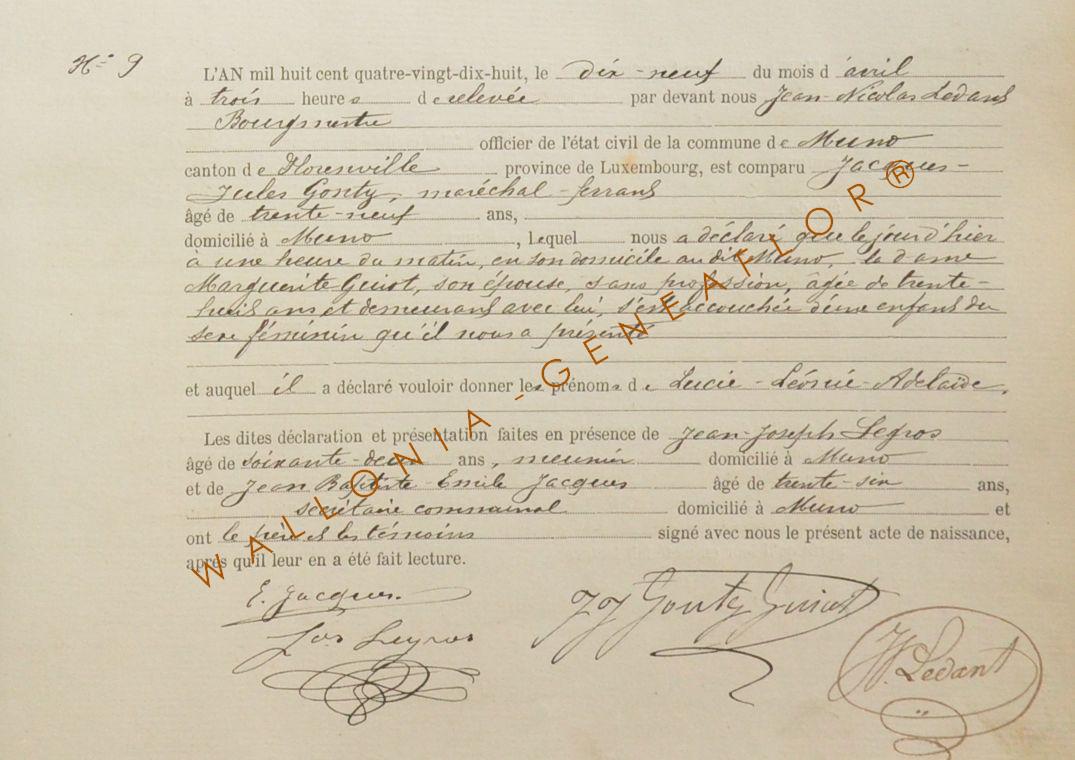 N° 9
L'AN mil huit cent quatre-vingt-dix-huit, le dix-neuf du mois d'avril
à trois heures de relevée par devant nous Jean-Nicolas Ledant
Bourgmestre
officier de l'état civil de la commune de Muno
canton de Florenville province de Luxembourg, est comparu Jacques-
Jules Gonty, maréchal-ferrant
âgé de trente-neuf ans,
domicilié à Muno, lequel nous a déclaré que le jour d'hier
à une heure du matin, en son domicile audit Muno, la dame
Marguerite Guiot, son épouse, sans profession, âgée de trente-
huit ans et demeurant avec lui, s'est accouchée d'une enfant du
sexe féminin qu'il nous a présenté
et auquel il a déclaré vouloir donner les prénoms de Lucie-Léonie-Adelaïde.
Les dites déclaration et présentation faites en présence de Jean-Joseph Legros
âgé de soixante-deux ans, meunier domicilié à Muno
et de Jean Baptiste Emile Jacques âgé de trente-six ans,
secrétaire communal domicilié à Muno et
ont le père et les témoins signé avec nous le présent acte de naissance,
après qu'il leur en a été fait lecture.
E. Jacques.
Jos Legros
JJ Gonty Guiot
N. Ledant
WALLONIA-GENEAFLOR®